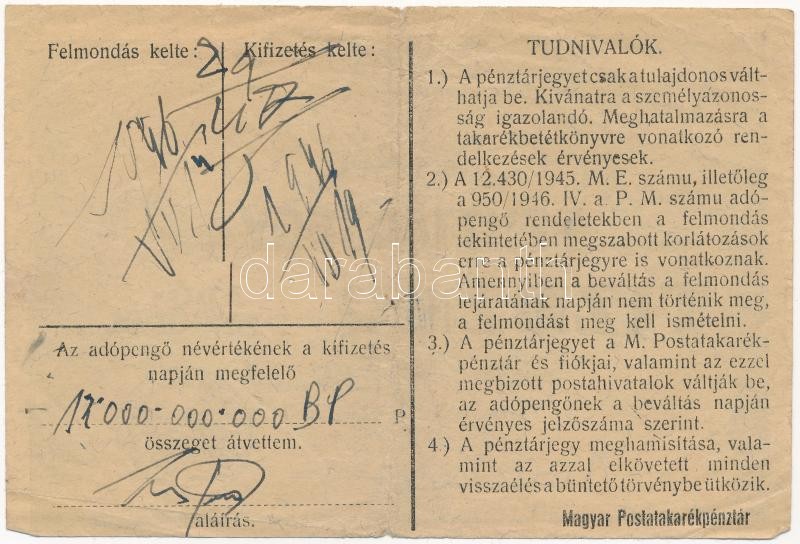 Felmondás kelte: Kifizetés kelte:
29
1946
1946
VII/19
Az adópengő névértékének a kifizetés
napján megfelelő
000.000.000 BP P
összeget átvettem.
aláírás.
TUDNIVALÓK.
1.) A pénztárjegyet csak a tulajdonos vált-
hatja be. Kivánatra a személyazonos-
ság igazolandó. Meghatalmazásra a
takarékbetétkönyvre vonatkozó ren-
delkezések érvényesek.
2.) A 12.430/1945. M. E. számu, illetőleg
a 950/1946. IV. a P. M. számu adó-
pengő rendeletekben a felmondás
tekintetében megszabott korlátozások
erre a pénztárjegyre is vonatkoznak.
Amennyiben a beváltás a felmondás
lejáratának napján nem történik meg,
a felmondást meg kell ismételni.
3.) A pénztárjegyet a M. Postatakarék-
pénztár és fiókjai, valamint az ezzel
megbizott postahivatalok váltják be,
az adópengőnek a beváltás napján
érvényes jelzőszáma szerint.
4.) A pénztárjegy meghamisítása, vala-
mint az azzal elkövetett minden
visszaélés a büntető törvénybe ütközik.
Magyar Postatakarékpénztár
darabanth.com